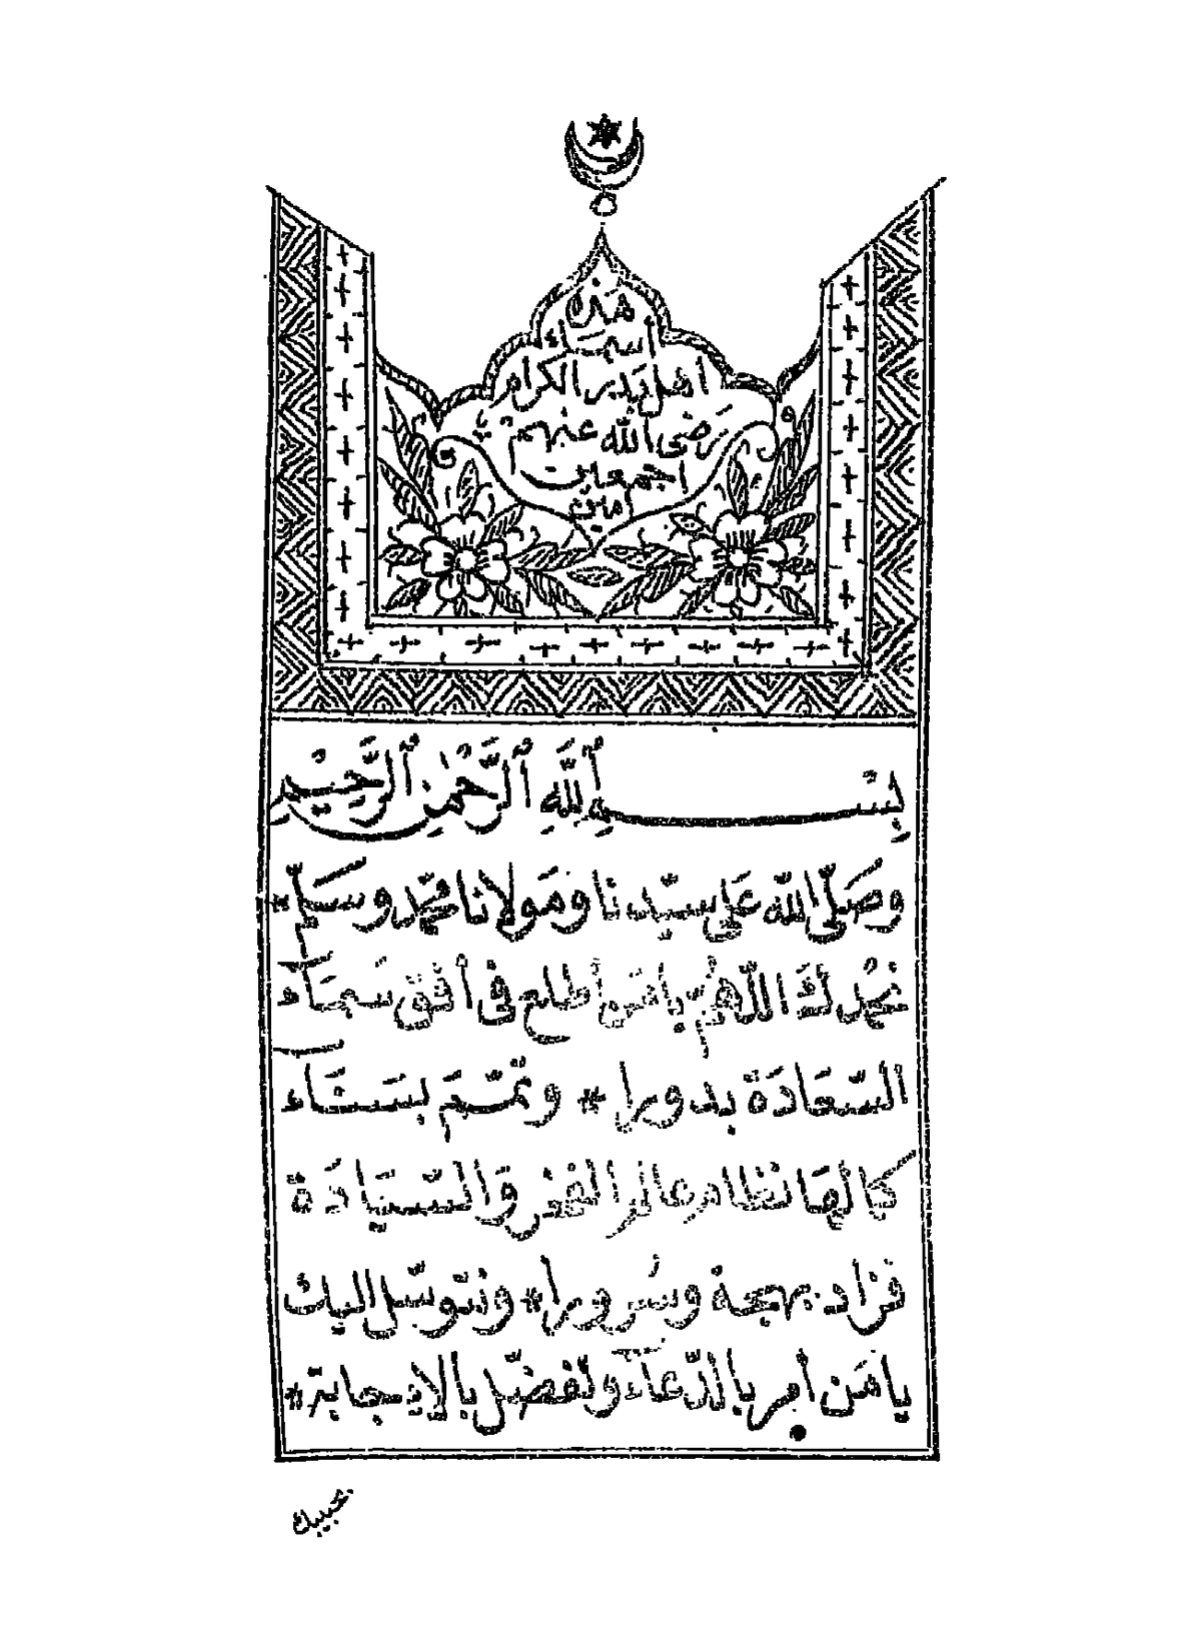 هذه
أسماء
اهل بدر الكرام
رضى الله عنهم
اجمعين
امين
بِسْمِ ٱللَّهِ ٱلرَّحْمٰنِ ٱلرَّحِيْمِ
وصَلّى الله عَلى سيّدنا ومَولانا محمّد وسَلّم *
نحمْدك اللّهمّ يامَن أطلع فى أفق سَمَآء
السّعَادَة بدورا * وتمّم بسَنَآء
كمالهَا نظام عالم الفخر وَالسّيَادَة
فزاد بهجة وسُرورا * ونتوسّل اليك
يامَن أمر بالدّعآء وتفضّل بالإجابة *
بحبيبك